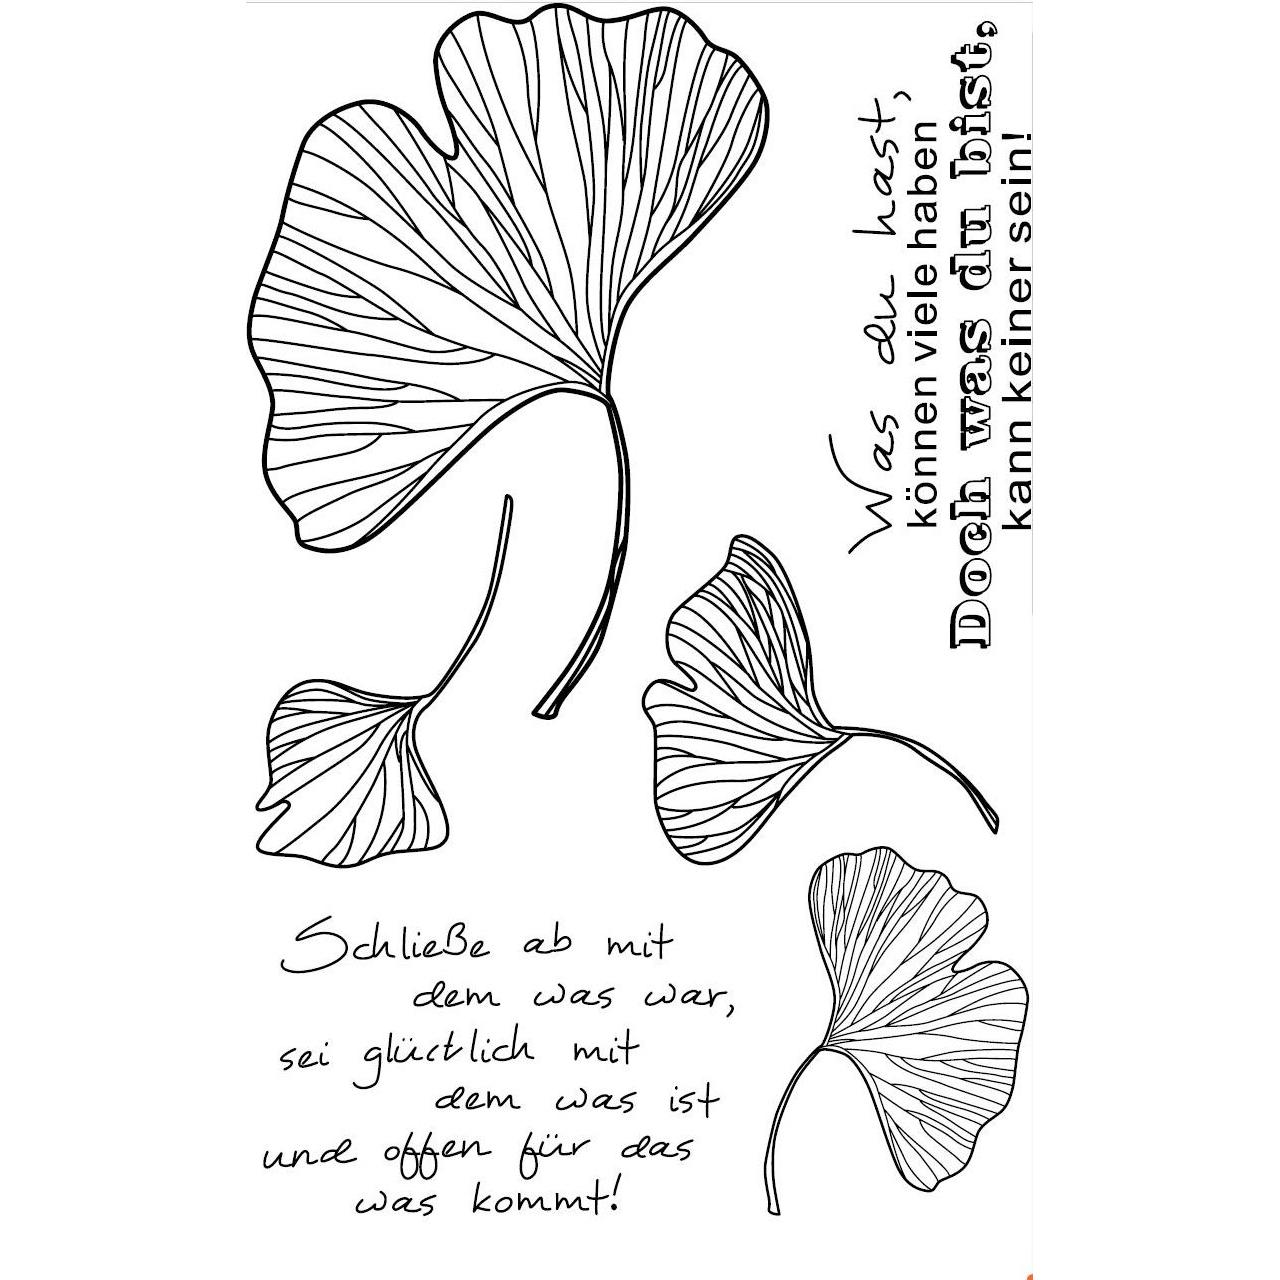 Was du hast,
können viele haben
Doch was du bist,
kann keiner sein!
Schließe ab mit
dem was war,
sei glücklich mit
dem was ist
und offen für das
was kommt!